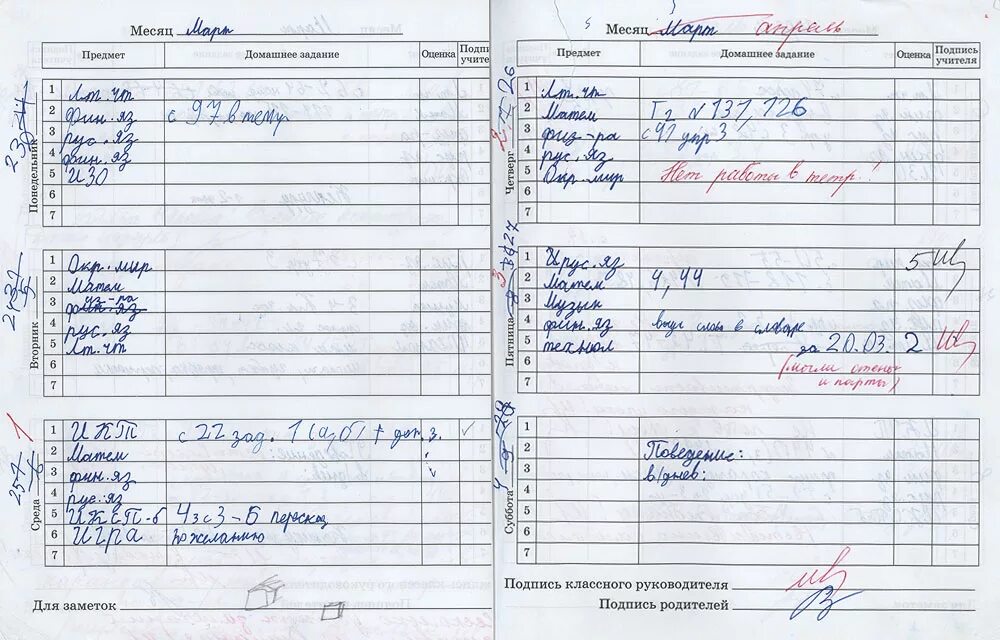 Месяц Март
Предмет Домашнее задание Оценка Подпись учителя
Понедельник
1 Лт. чт
2 фин. яз с 97 в тему
3 рус. яз
4 фин. яз
5 ИЗО
6
7
Вторник
1 Окр. мир
2 Матем
3 физ-ра
4 рус. яз
5 Лт. чт
6
7
Среда
1 ИКТ с 22 зад. 1 (а, б) + доп. з.
2 Матем
3 фин. яз
4 рус. яз
5 ИКСП-б 4 з с 3-5 перессказ
6 Игра по желанию
7
Для заметок
Месяц Март апрель
Предмет Домашнее задание Оценка Подпись учителя
Четверг
1 Лт. чт
2 Матем Гг № 131, 126
3 физ-ра с 91 упр 3
4 рус. яз
5 Окр. мир Нет работы в тетр.!
6
7
Пятница
1 рус. яз 5
2 Матем 4, 44
3 Музык
4 фин. яз выуч слова в словаре
5 технол за 20.03. 2
6 (могли стены
7 и парты)
Суббота
1
2 Поведение:
3 в/днев:
4
5
6
7
Подпись классного руководителя
Подпись родителей